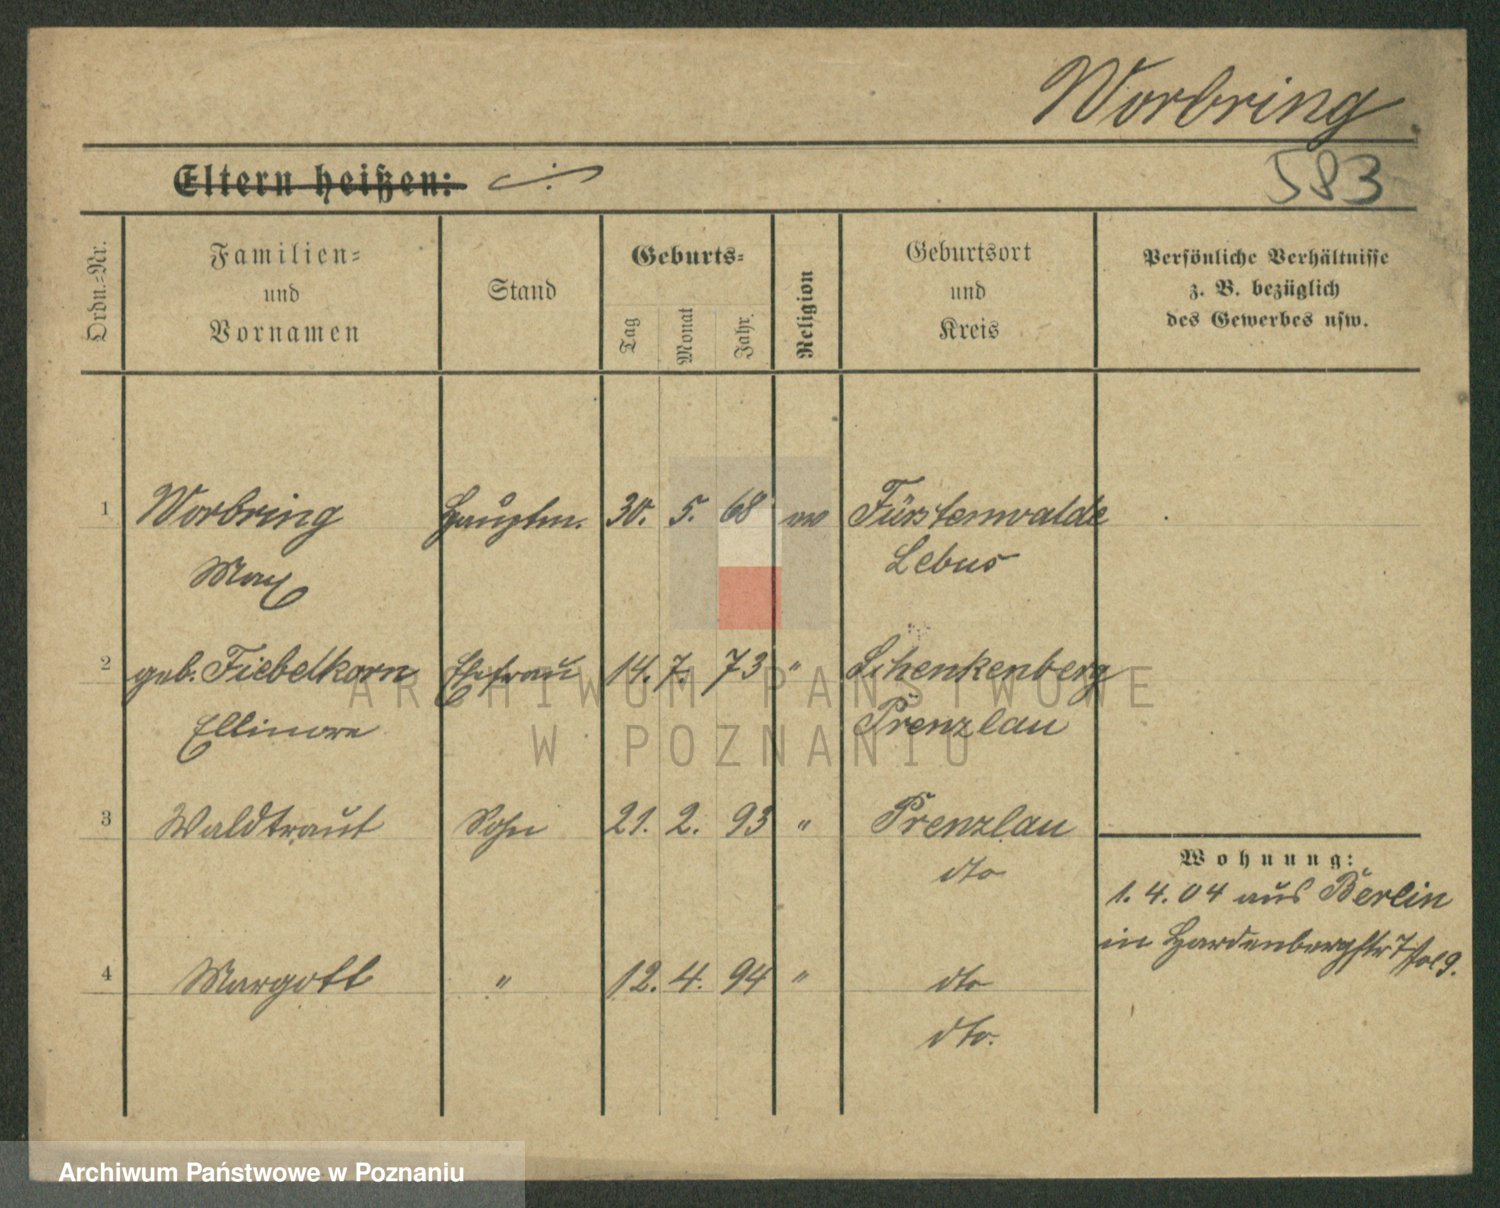 Worbring
583
Eltern heißen:
Ordn.=Nr.
Familien=
und
Vornamen
Stand
Geburts=
Tag
Monat
Jahr.
Religion
Geburtsort
und
Kreis
Persönliche Verhältnisse
z. B. bezüglich
des Gewerbes usw.
1 Worbring Hauptm. 30. 5. 68 ev Fürstenwalde
Max Lebus
2 geb. Fiebelkorn Ehefrau 14. 7. 73 " Schenkenberg
Ellinore Prenzlau
3 Waldtraut Sohn 21. 2. 93 " Prenzlau
dto
4 Margott " 12. 4. 94 " dto
dto.
Wohnung:
1. 4. 04 aus Berlin
in Hardenbergstr 7
ARCHIWUM PAŃSTWOWE
W POZNANIU
Archiwum Państwowe w Poznaniu